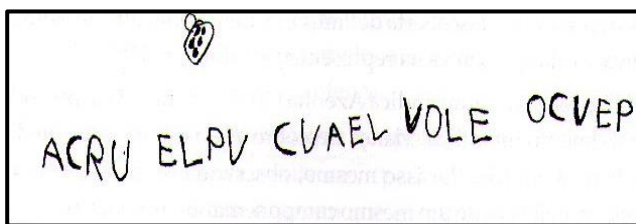 ACRU ELPU CUAEL VOLE OCUEP